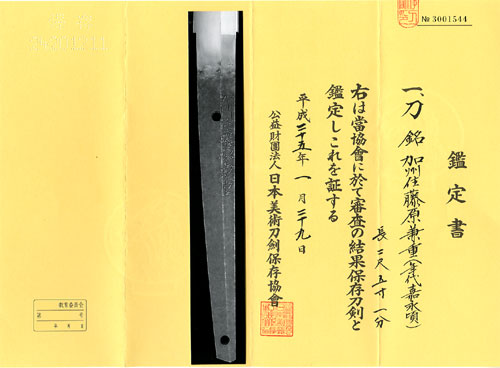 № 3001544
鑑定書
一、刀 銘 加州住藤原兼重(年代嘉永頃)
長二尺五寸一分
右は當協會に於て審査の結果保存刀剣と
鑑定しこれを証する
平成二十五年一月二十九日
公益財團法人 日本美術刀劍保存協會
教育委員会
第 号
年 月 日